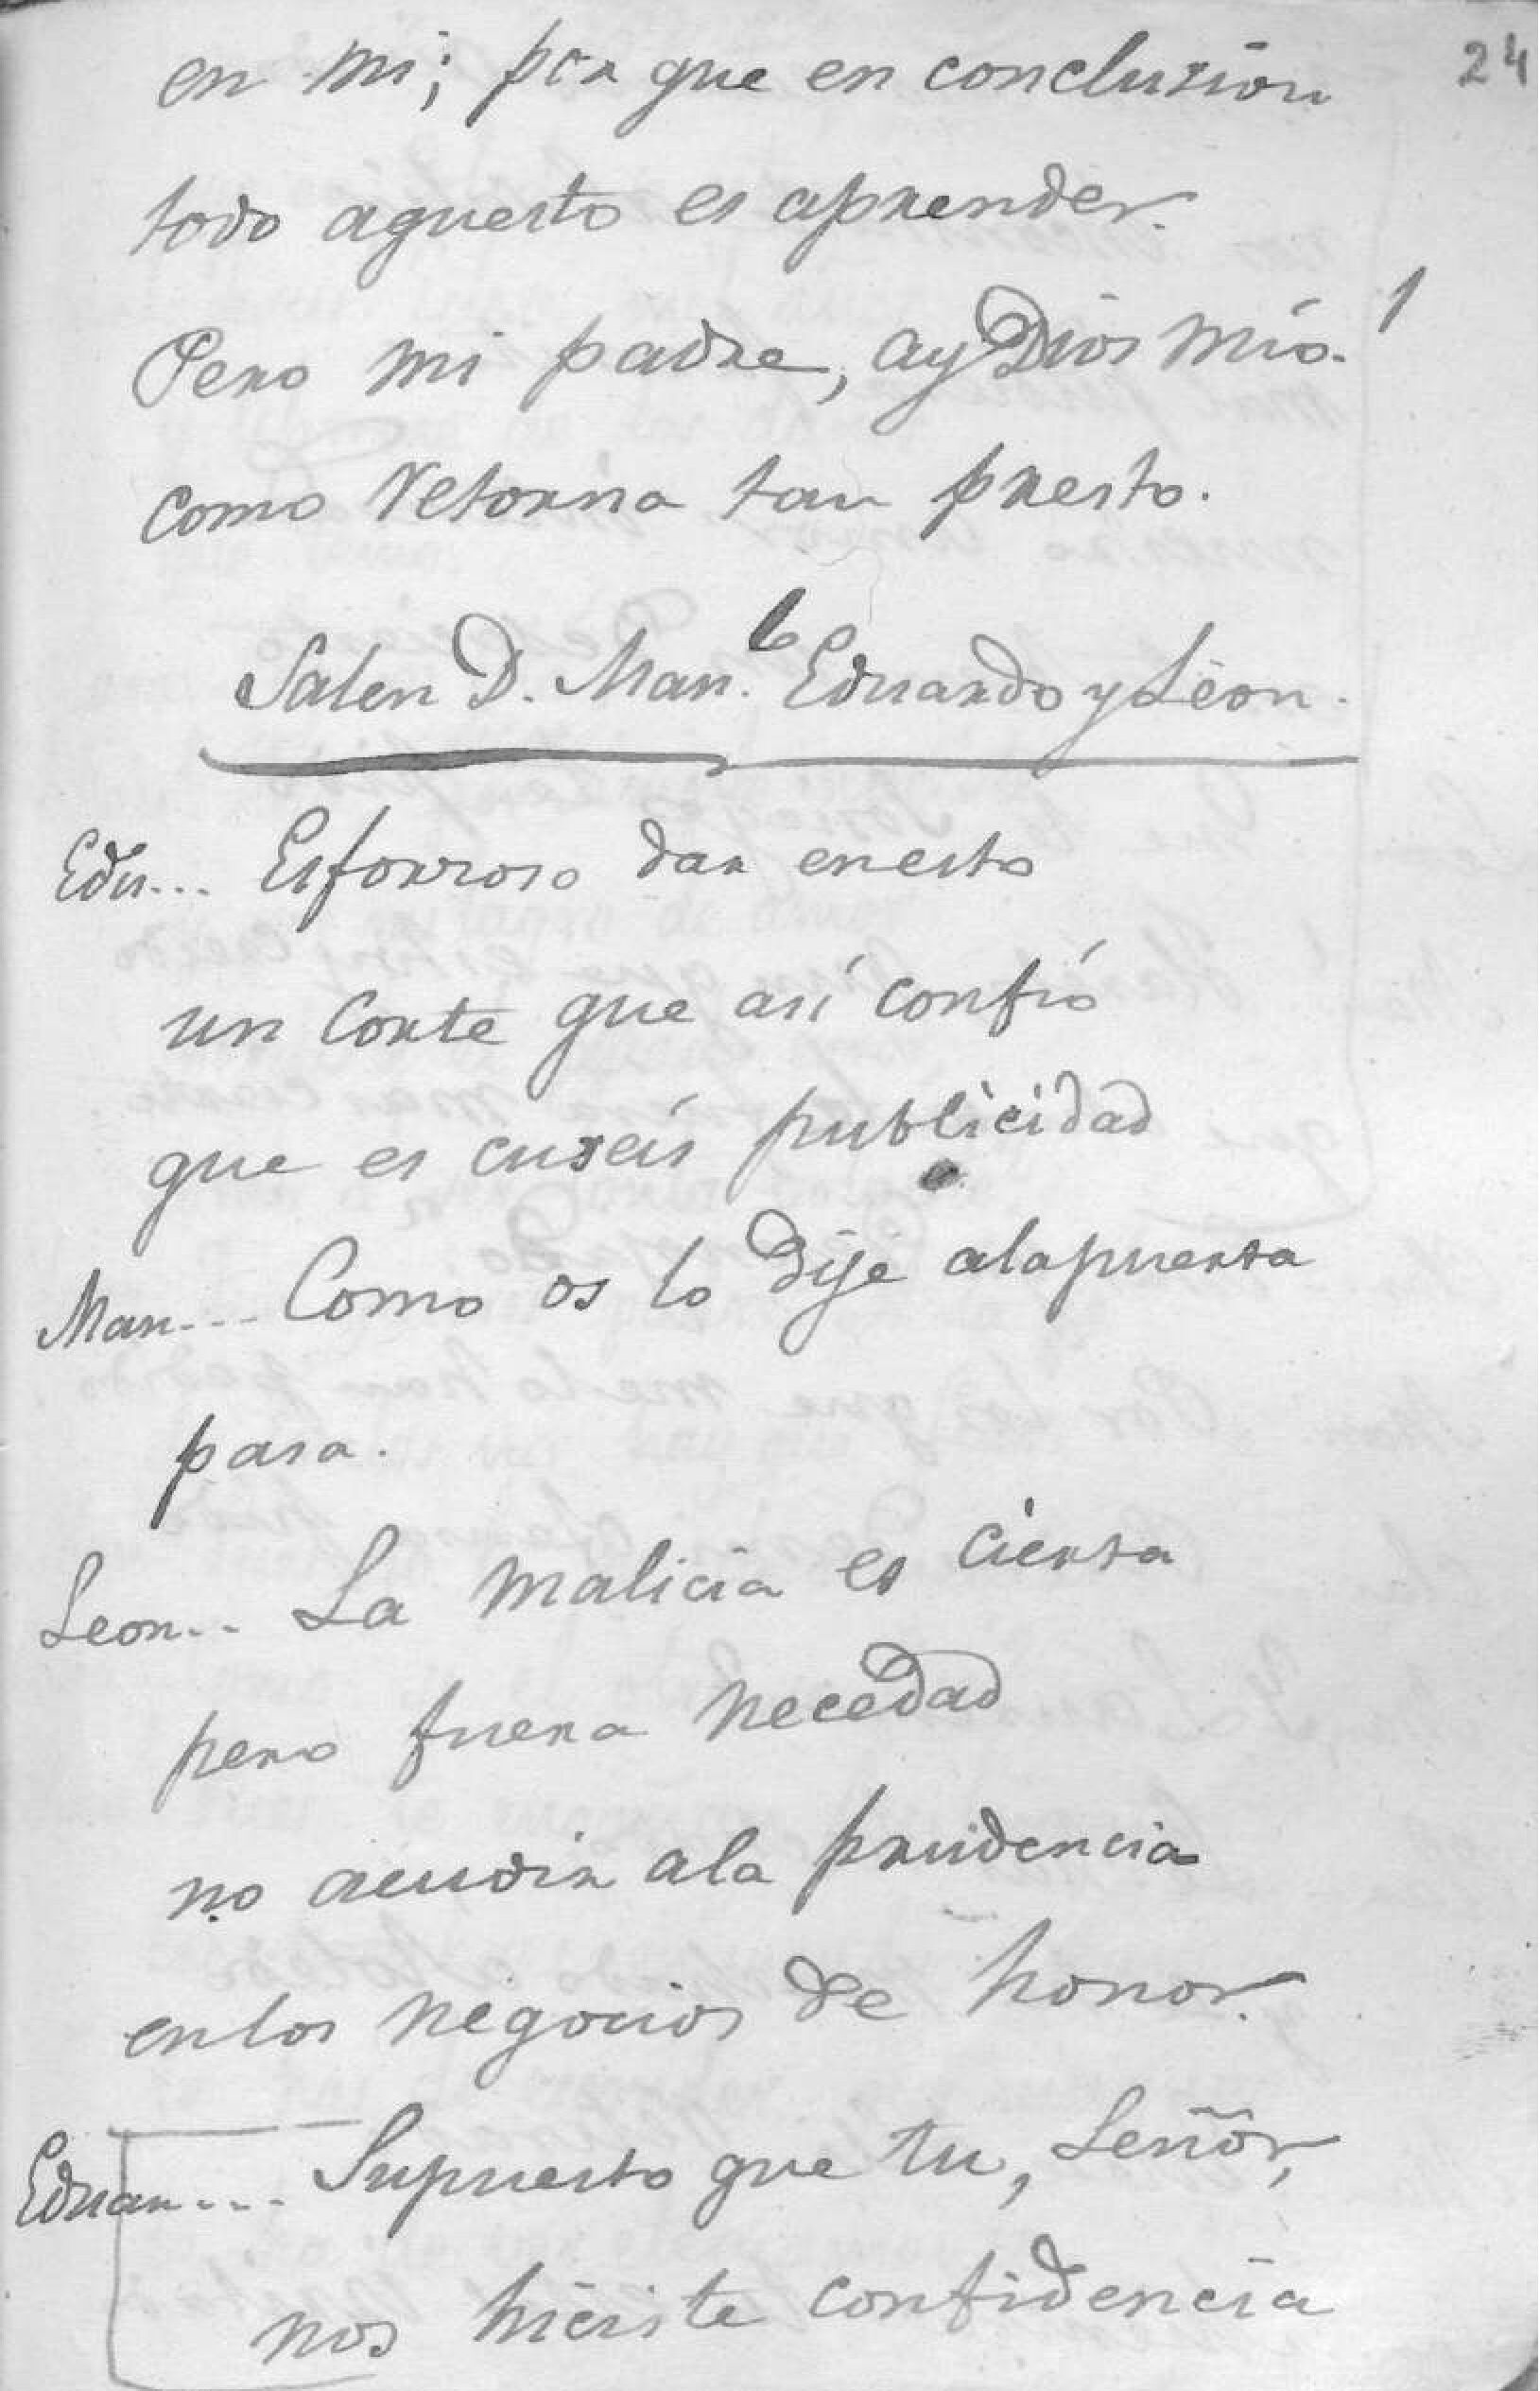 24
en mi; por que en conclusion
todo aquesto es aprender.
Pero mi padre, ay Dios mio.
como retorna tan presto.
Salen D. Man.l Eduardo y Leon.
Edu... Esforroso dar enesto
un corte que así confió
que es cuseis publicidad
Man... Como os lo dije alapuerta
pasa.
Leon.. La malicia es cierta
pero fuera necedad
no acudir ala prudencia
enlos negocios de honor.
Eduar.... Supuesto que tu, Señor,
nos hiciste confidencia